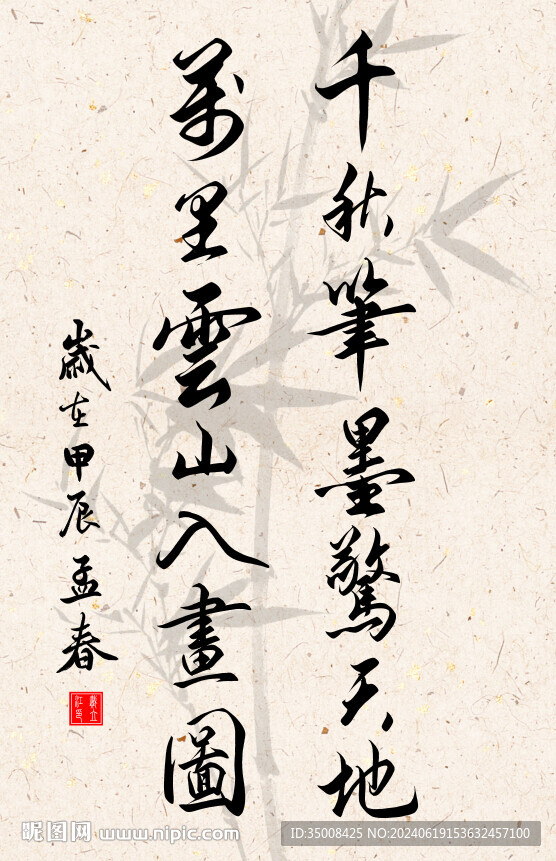 千秋筆墨驚天地
萬里雲山入畫圖
歲在甲辰孟春
昵图网 www.nipic.com
ID:35008425 NO:20240619153632457100